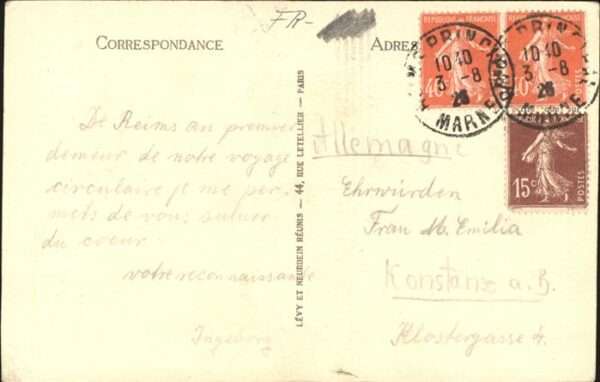 FR-
CORRESPONDANCE
ADRES
De Reims au premier
demeur de notre voyage
circulaire je me per
mets de vous saluer
du coeur
votre reconnaissante
Ingeborg
LÉVY ET NEURDEIN RÉUNIS — 44, RUE LETELLIER — PARIS
RÉPUBLIQUE FRANÇAISE
40c
REIMS PRINCIPAL
10 40
3 -8
26
MARNE
PRINCIPAL
10 40
3 -8
26
15c
POSTES
Allemagne
Ehrwürden
Frau M. Emilia
Konstanz a. B.
Klostergasse 4.